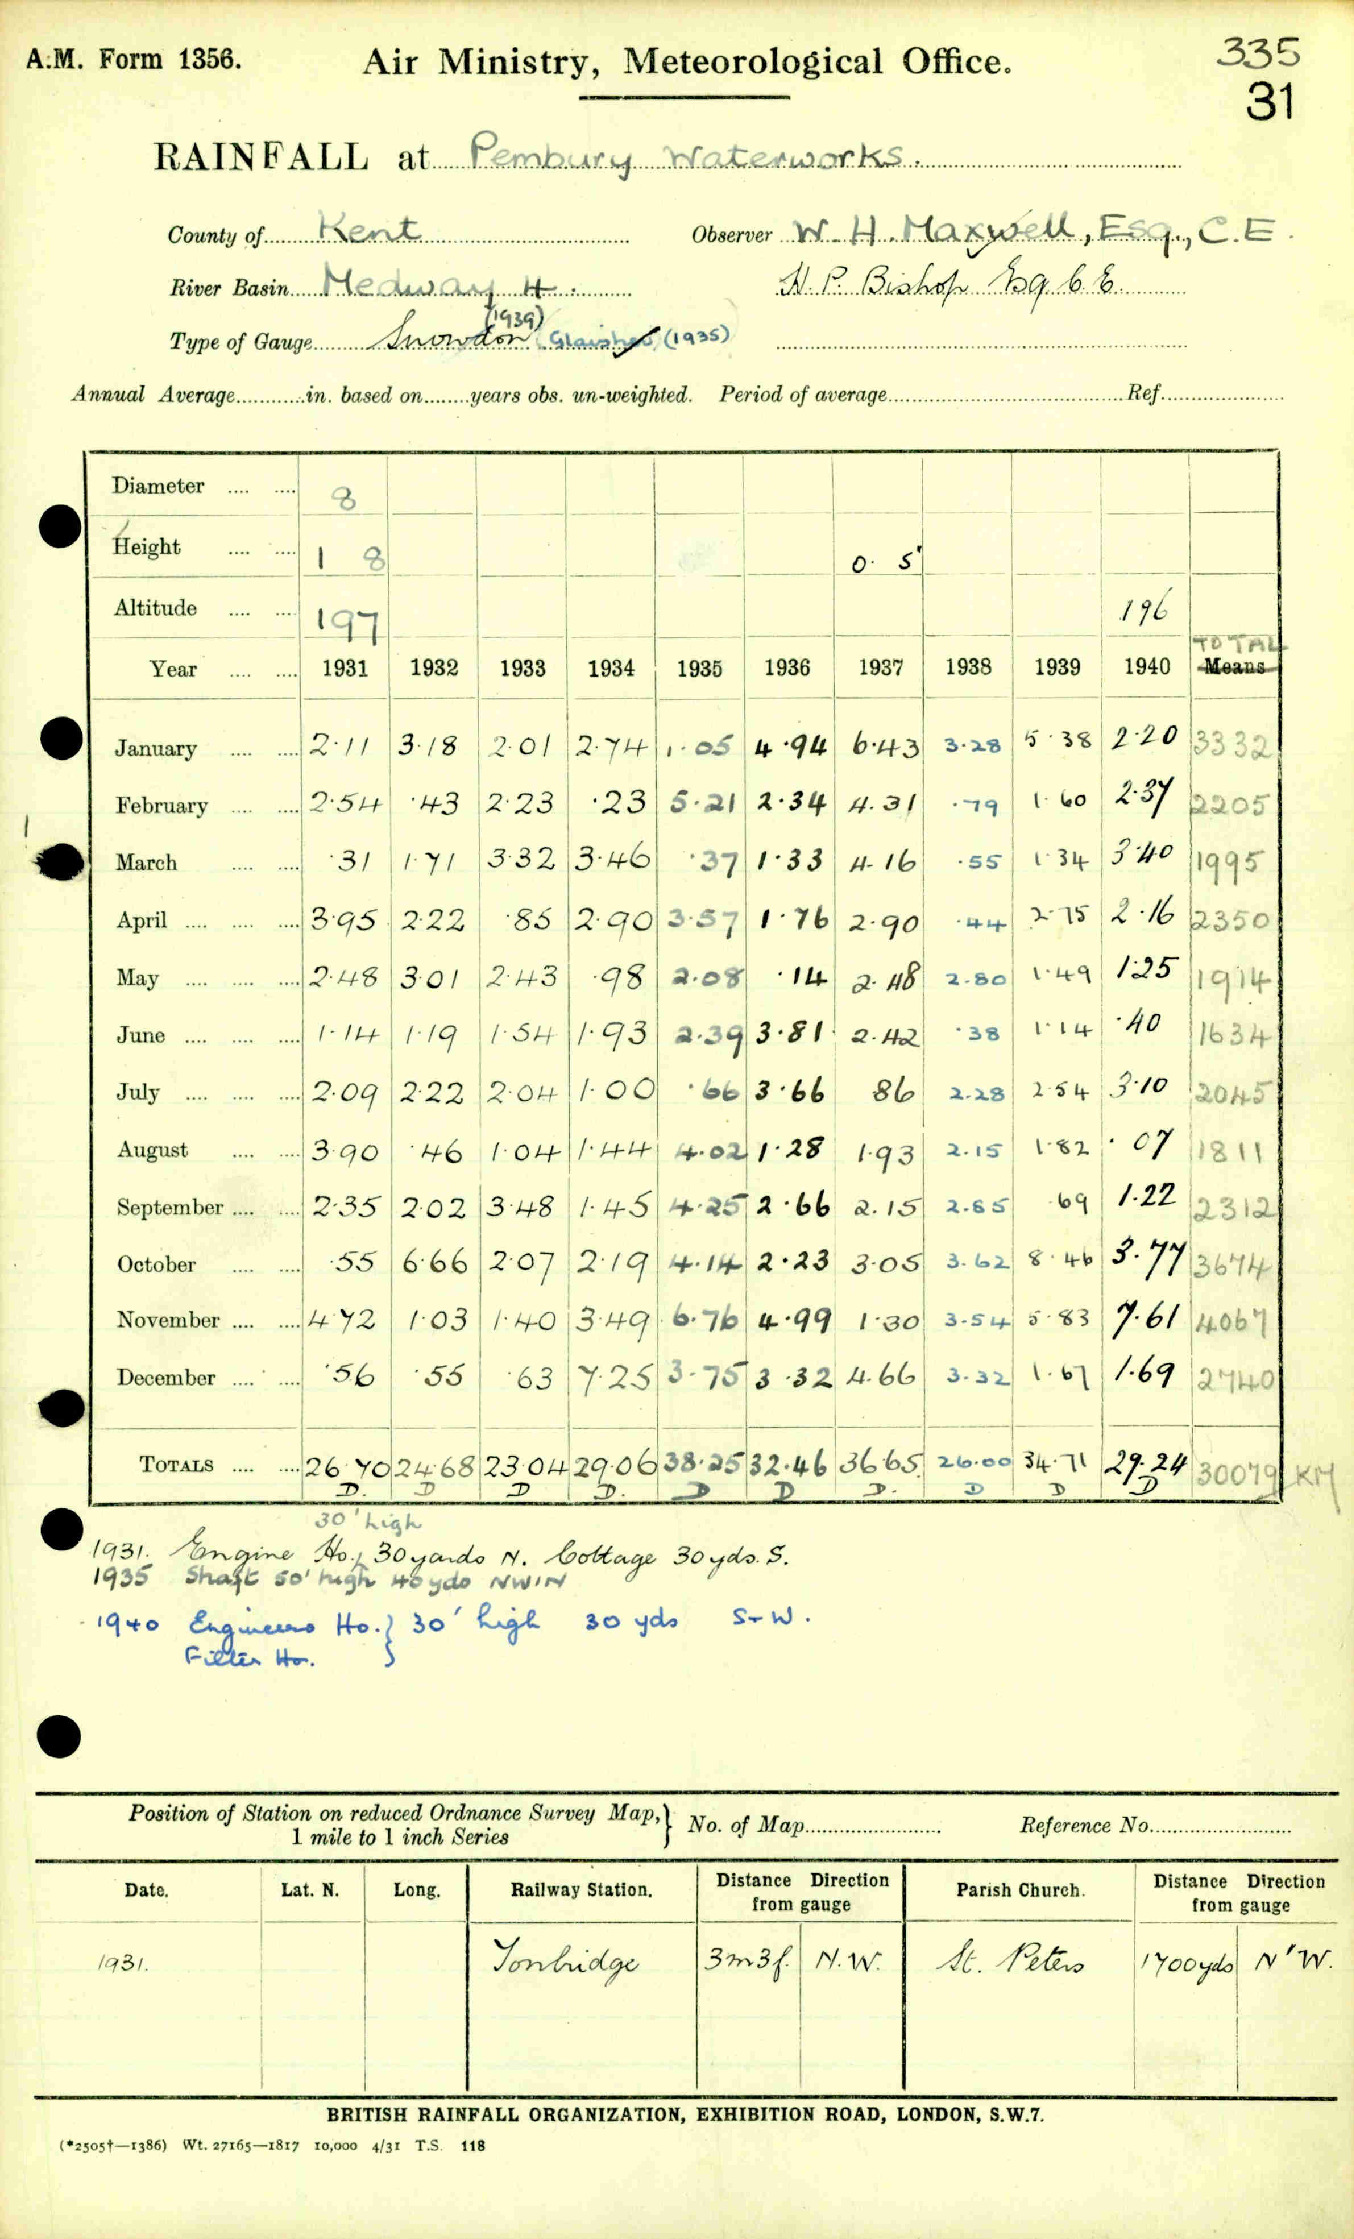 A.M. Form 1356. Air Ministry, Meteorological Office. 335
31
RAINFALL at Pembury Waterworks.
County of Kent Observer W. H. Maxwell, Esq., C.E.
River Basin Medway 4. H. P. Bishop Esq C.E.
Type of Gauge Snowdon (1939) Glaisher (1935)
Annual Average in. based on years obs. un-weighted. Period of average Ref.
Diameter 8
Height 1 8 0. 5"
Altitude 197 196
TOTAL
Year 1931 1932 1933 1934 1935 1936 1937 1938 1939 1940 Means
January 2.11 3.18 2.01 2.74 1.05 4.94 6.43 3.28 5.38 2.20 3332
February 2.54 .43 2.23 .23 5.21 2.34 4.31 .79 1.60 2.37 2205
March .31 1.71 3.32 3.46 .37 1.33 4.16 .55 1.34 3.40 1995
April 3.95 2.22 .85 2.90 3.57 1.76 2.90 .44 2.75 2.16 2350
May 2.48 3.01 2.43 .98 2.08 .14 2.48 2.80 1.49 1.25 1914
June 1.14 1.19 1.54 1.93 2.39 3.81 2.42 .38 1.14 .40 1634
July 2.09 2.22 2.04 1.00 .66 3.66 86 2.28 2.54 3.10 2045
August 3.90 .46 1.04 1.44 4.02 1.28 1.93 2.15 1.82 .07 1811
September 2.35 2.02 3.48 1.45 4.25 2.66 2.15 2.85 .69 1.22 2312
October .55 6.66 2.07 2.19 4.14 2.23 3.05 3.62 8.46 3.77 3674
November 4.72 1.03 1.40 3.49 6.76 4.99 1.30 3.54 5.83 7.61 4067
December .56 .55 .63 7.25 3.75 3.32 4.66 3.32 1.67 1.69 2740
TOTALS 26.70 24.68 23.04 29.06 38.25 32.46 36.65 26.00 34.71 29.24 30079 KM
D. D D D. D D D. D D D
30' high
1931. Engine Ho., 30 yards N. Cottage 30 yds. S.
1935 Shaft 50' high 40 yds NW'N
1940 Engineers Ho. } 30' high 30 yds S-W.
Filter Ho.
Position of Station on reduced Ordnance Survey Map, } No. of Map Reference No.
1 mile to 1 inch Series
Date. Lat. N. Long. Railway Station. Distance Direction from gauge Parish Church. Distance Direction from gauge
1931. Tonbridge 3m3f. N.W. St. Peters 1700yds N'W.
BRITISH RAINFALL ORGANIZATION, EXHIBITION ROAD, LONDON, S.W.7.
(*2505†—1386) Wt. 27165—1817 10,000 4/31 T.S. 118